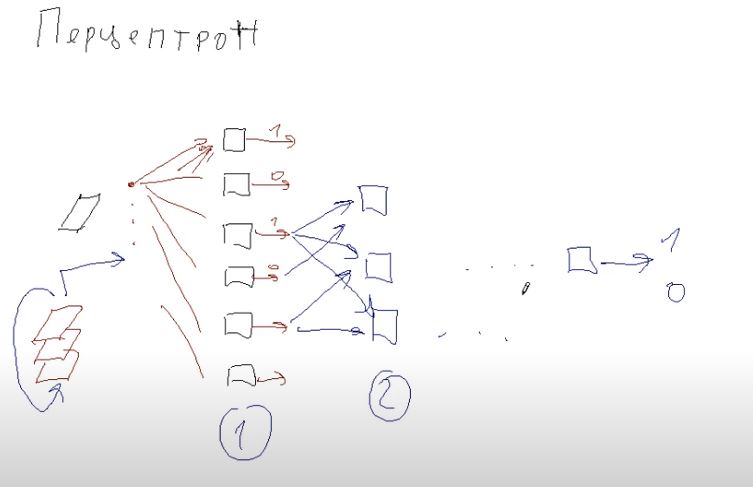 Перцептрон
1
0
1
0
1
0
1
2